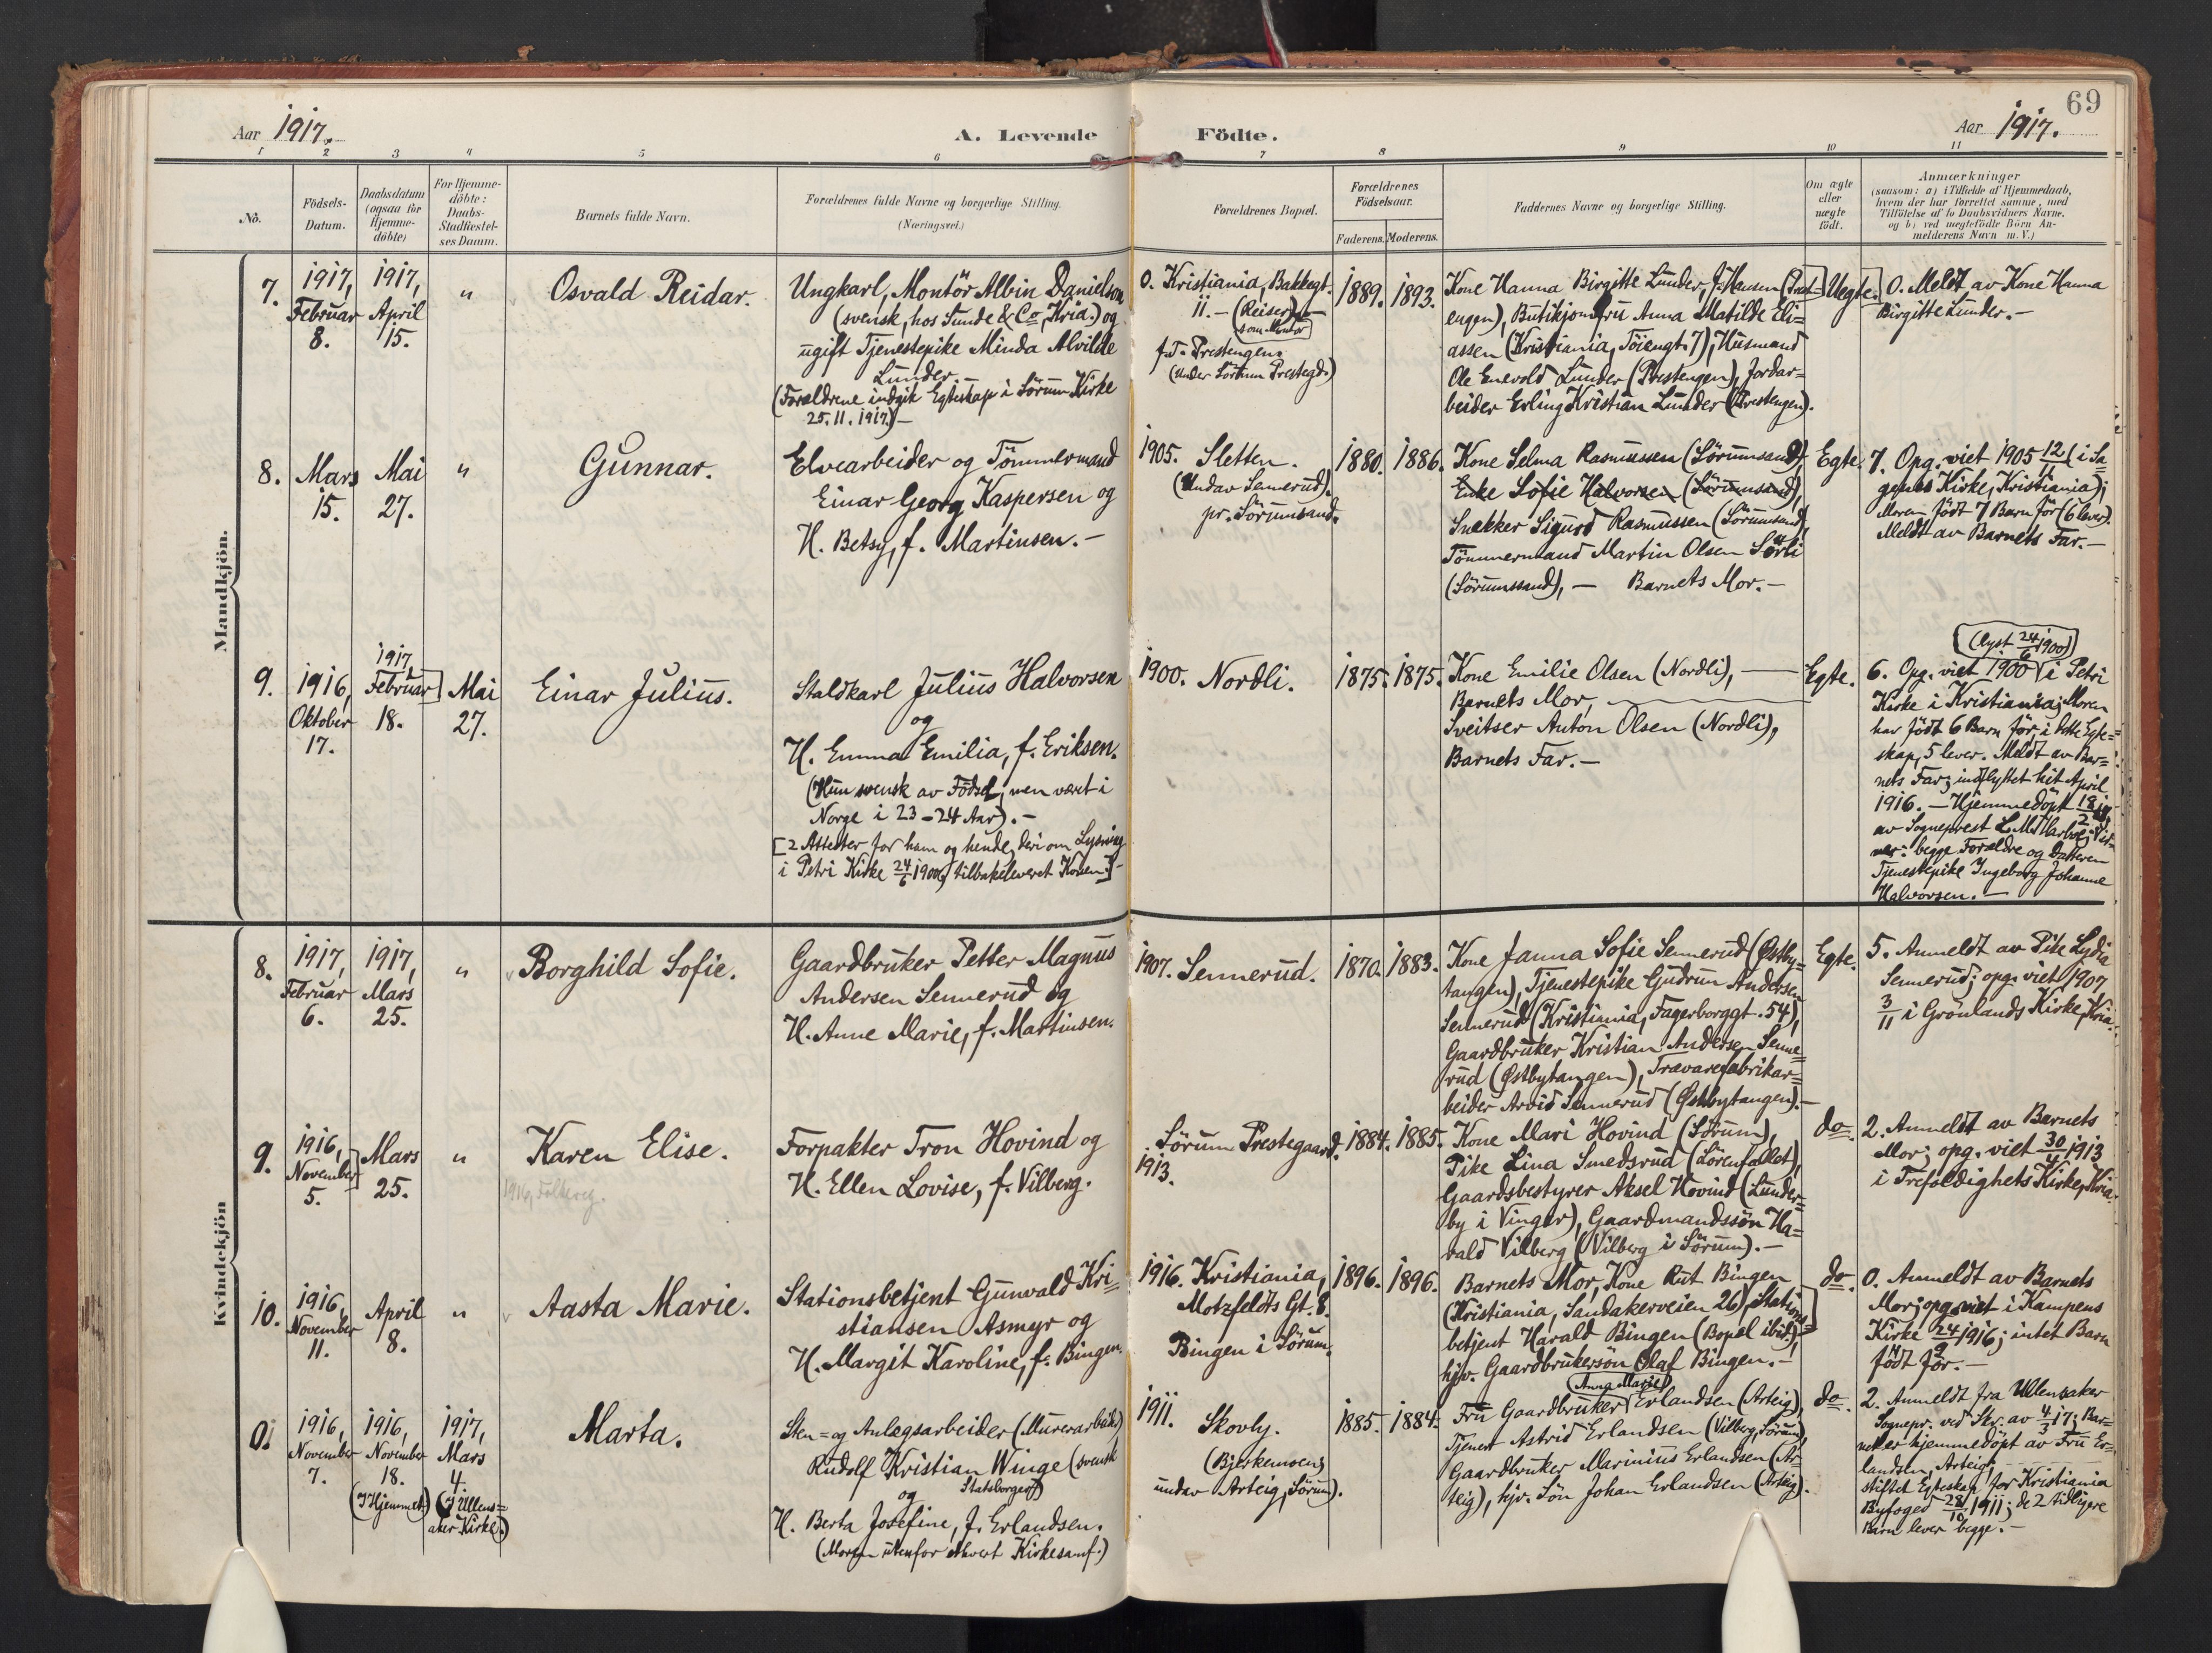 69
Aar 1917.
A. Levende Födte.
Aar 1917.
1 2 3 4 5 6 7 8 9 10 11
No.
Födsels-
Datum.
Daabsdatum
(ogsaa for
Hjemme-
döbte)
For Hjemme-
döbte:
Daabs-
Stadfæstel-
ses Datum.
Barnets fulde Navn.
Forældrenes fulde Navne og borgerlige Stilling.
(Næringsvei.)
Forældrenes Bopæl.
Forældrenes
Födselsaar.
Faderens. Moderens.
Faddernes Navne og borgerlige Stilling.
Om ægte
eller
uægte
födt.
Anmærkninger
(saasom: a) i Tilfælde af Hjemmedaab,
hvem der har forrettet samme, med
Tilföielse af to Daabsvidners Navne.
og b) ved uægtefödte Börn An-
melderens Navn m.V.)
Mandkjön.
7.
1917,
Februar
8.
1917,
April
15.
"
Osvald Reidar.
Ungkarl, Montör Albin Danielson
(svensk, hos Sunde & Co, Kria.) og
ugift Tjenestepike Minda Alvilde
Lunder.
(Forældrene indgik Egteskap i Sörum Kirke
25.11.1917.)-
0. Kristiania, Bakkegt.
11. - (Reiser)
som Montör
f.T. Prestengen.
(under Sörum Prestegd.)
1889.
1893.
Kone Hanna Birgitte Lunder, f. Hansen (Prest-
engen), Butikjomfru Anna Matilde Eli=
assen (Kristiania, Töiengt. 7), Husmand
Ole Enevold Lunder (Prestengen), Jordar=
beider Erling Kristian Lunder (Prestengen).
Uegte.
0. Meldt av Kone Hanna
Birgitte Lunder. -
8.
Mars
15.
Mai
27.
"
Gunnar.
Elvearbeider og Tömmermand
Einar Georg Kaspersen og
H. Betsy, f. Martinsen. -
1905. Sletten.
(Undav Sennerud)
pr. Sörumsand.
1880.
1886.
Kone Selma Rasmussen (Sörumsand),
Enke Sofie Halvorsen (Sörumsand),
Snekker Sigurd Rasmussen (Sörumsand),
Tömmermand Martin Olsen Sörli
(Sörumssand), - Barnets Mor. -
Egte.
7. Opg. viet 1905 12/11 (i Sa-
genes Kirke, Kristiania);
Moren födt 7 Barn för (6 lever).
Meldt av Barnets Far. -
9.
1916,
Oktober
17.
1917,
Februar
18.
Mai
27.
Einar Julius.
Staldkarl Julius Halvorsen
og
H. Emma Emilia, f. Eriksen.
(Hun svensk av Födsel, men været i
Norge i 23-24 Aar). -
[2 Attester for ham og hende, deri om Lysning
i Petri Kirke 24/6 1900, tilbakeleveret Konen.]-
1900. Nordli.
1875.
1875.
Kone Emilie Olsen (Nordli), -
Barnets Mor,
Sveitser Anton Olsen (Nordli),
Barnets Far. -
Egte.
(lyst 24/6 1900)
6. Opg. viet 1900 i Petri
Kirke i Kristiania; Moren
har födt 6 Barn för, i dette Egte=
skap, 5 lever. Meldt av Bar=
nets Far; indflyttet hit April
1916. - Hjemmedöpt 18/2 17
av Sogneprest
begge Forældre og Datteren
Tjenestepike Ingeborg Johanne
Halvorsen. -
Kvindekjön
8.
1917,
Februar
6.
1917,
Mars
25.
"
Borghild Sofie.
Gaardbruker Petter Magnus
Andersen Sennerud og
H. Anne Marie, f. Martinsen.
1907. Sennerud.
1870.
1883.
Kone Janna Sofie Sennerud (Østby=
tangen), Tjenestepike Gudrun Andersen
Sennerud (Kristiania, Fagerborggt. 54),
Gaardbruker Kristian Andersen Senne=
rud (Østbytangen), Trævarefabrikar=
beider Arvid Sennerud (Østbytangen). -
Egte.
5. Anmeldt av Pike Lydia
Sennerud; opg. viet 1907,
3/11 i Grönlands Kirke, Kria.
9.
1916,
November
5.
Mars
25.
"
Karen Elise.
1916, Folkereg.
Forpakter Tron Hovind og
H. Ellen Lovise, f. Vilberg.
Sörum Prestegaard.
1913.
1884.
1885.
Kone Mari Hovind (Sörum),
Pike Lina Smedsrud (Sörenfallet),
Gaardsbestyrer Aksel Hovind (Lunder=
by i Vinger), Gaardmandssön Ha=
rald Vilberg (Vilberg i Sörum). -
do.
2. Anmeldt av Barnets
Mor; opg. viet 30/4 1913
i Trefoldighets Kirke, Kria.
10.
1916,
November
11.
April
8.
"
Aasta Marie.
Stationsbetjent Gunvald Kri=
stiansen Asmyr og
H. Margit Karoline, f. Bingen.
1916. Kristiania,
Motzfeldts Gt. 8.
Bingen i Sörum.
1896.
1896.
Barnets Mor, Kone Rut Bingen
(Kristiania, Sandakerveien 26), Stations=
betjent Harald Bingen (Bopæl ibid.),
hjv. Gaardbrukersön Olaf Bingen. -
do.
0. Anmeldt av Barnets
Mor; opg. viet i Kampens
Kirke 24/9 1916; intet Barn
födt för. -
1916,
November
7.
1916,
November
18.
(I Hjemmet)
1917,
Mars
4.
(I Ullens=
aker Kirke.)
Marta.
Sten= og Anlægsarbeider (Murerarbeider)
Rudolf Kristian Winge (svensk
Statsborger)
og
H. Berta Josefine, f. Erlandsen.
(Moren utenfor ethvert Kirkesamf.)
1911. Skovly.
(Bjerkemoen,
undav Arteig, Sörum).
1885.
1884.
(Anna Marie)
Fru Gaardbruker Erlandsen (Arteig),
Tjener Astrid Erlandsen (Vilberg, Sörum),
Gaardbruker Marinius Erlandsen (Ar=
teig), hjv. Sön Johan Erlandsen (Arteig).
do.
2. Anmeldt fra Ullensaker
Sognepr. ved Skr. av 4/3 17; Bar=
net er hjemmedöpt av Fru Er=
landsen, Arteig;
stiftet Egteskap for Kristiania
Byfoged 28/10 1911; de 2 tidligere
Barn lever begge. -